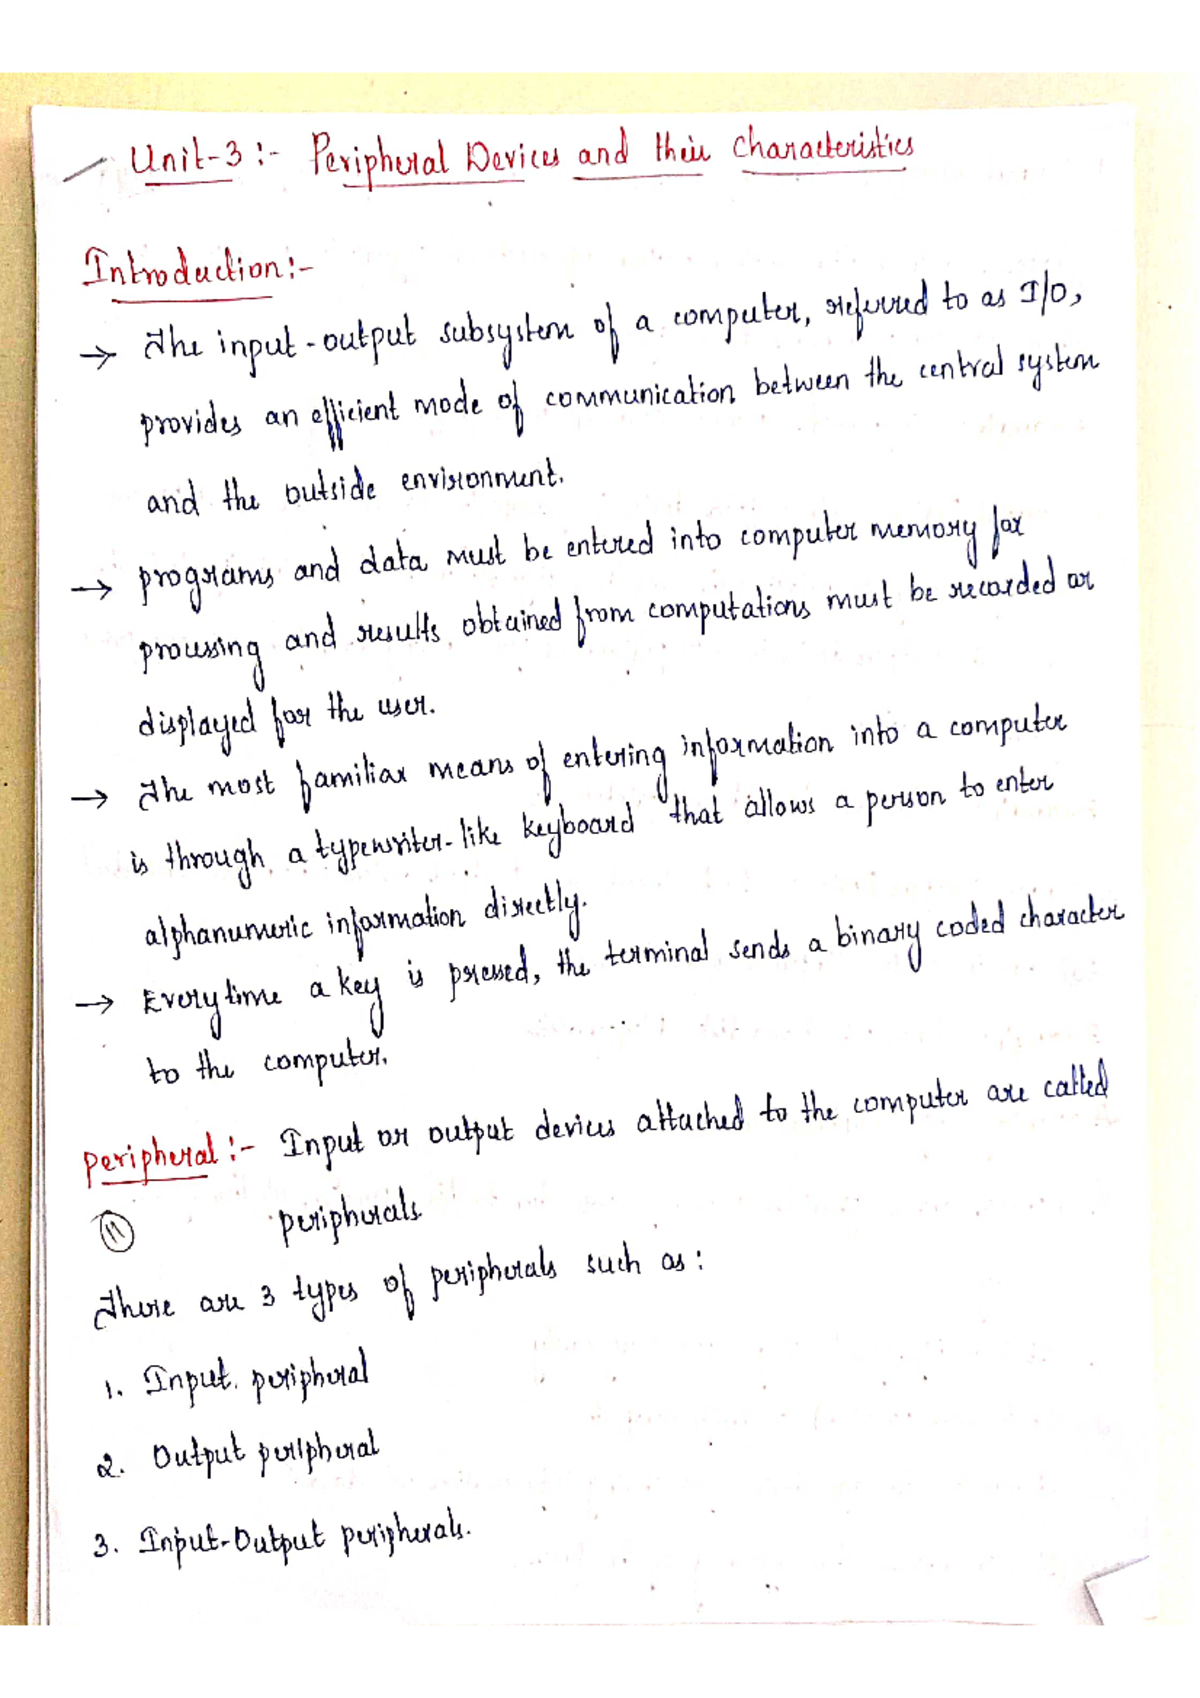 Unit-3:- Peripheral Devices and their characteristics
Introduction:-
→ The input-output subsystem of a computer, referred to as I/O,
provides an efficient mode of communication between the central system
and the outside environment.
→ programs and data must be entered into computer memory for
processing and results obtained from computations must be recorded or
displayed for the user.
→ The most familiar means of entering information into a computer
is through a typewriter-like keyboard that allows a person to enter
alphanumeric information directly.
→ Every time a key is pressed, the terminal sends a binary coded character
to the computer.
peripheral:- Input or output devices attached to the computer are called
peripherals
There are 3 types of peripherals such as:
1. Input peripheral
2. Output peripheral
3. Input-Output peripherals.